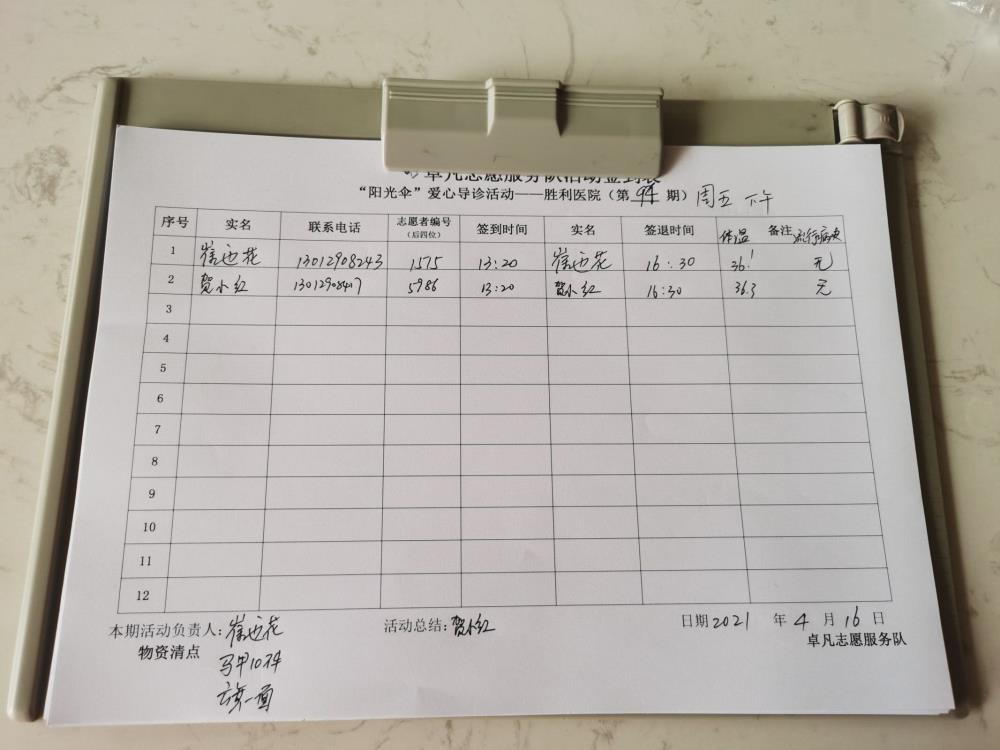 卓凡志愿服务队活动签到表
“阳光伞”爱心导诊活动——胜利医院（第94期）周五 下午
序号 实名 联系电话 志愿者编号（后四位） 签到时间 实名 签退时间 体温 备注 流行病史
1 崔迎花 13012908243 1575 13:20 崔迎花 16:30 36.1 无
2 贺小红 13012908417 5986 13:20 贺小红 16:30 36.3 无
3
4
5
6
7
8
9
10
11
12
本期活动负责人：崔迎花 活动总结：贺小红 日期 2021 年 4 月 16 日
物资清点 卓凡志愿服务队
马甲10件
旗一面